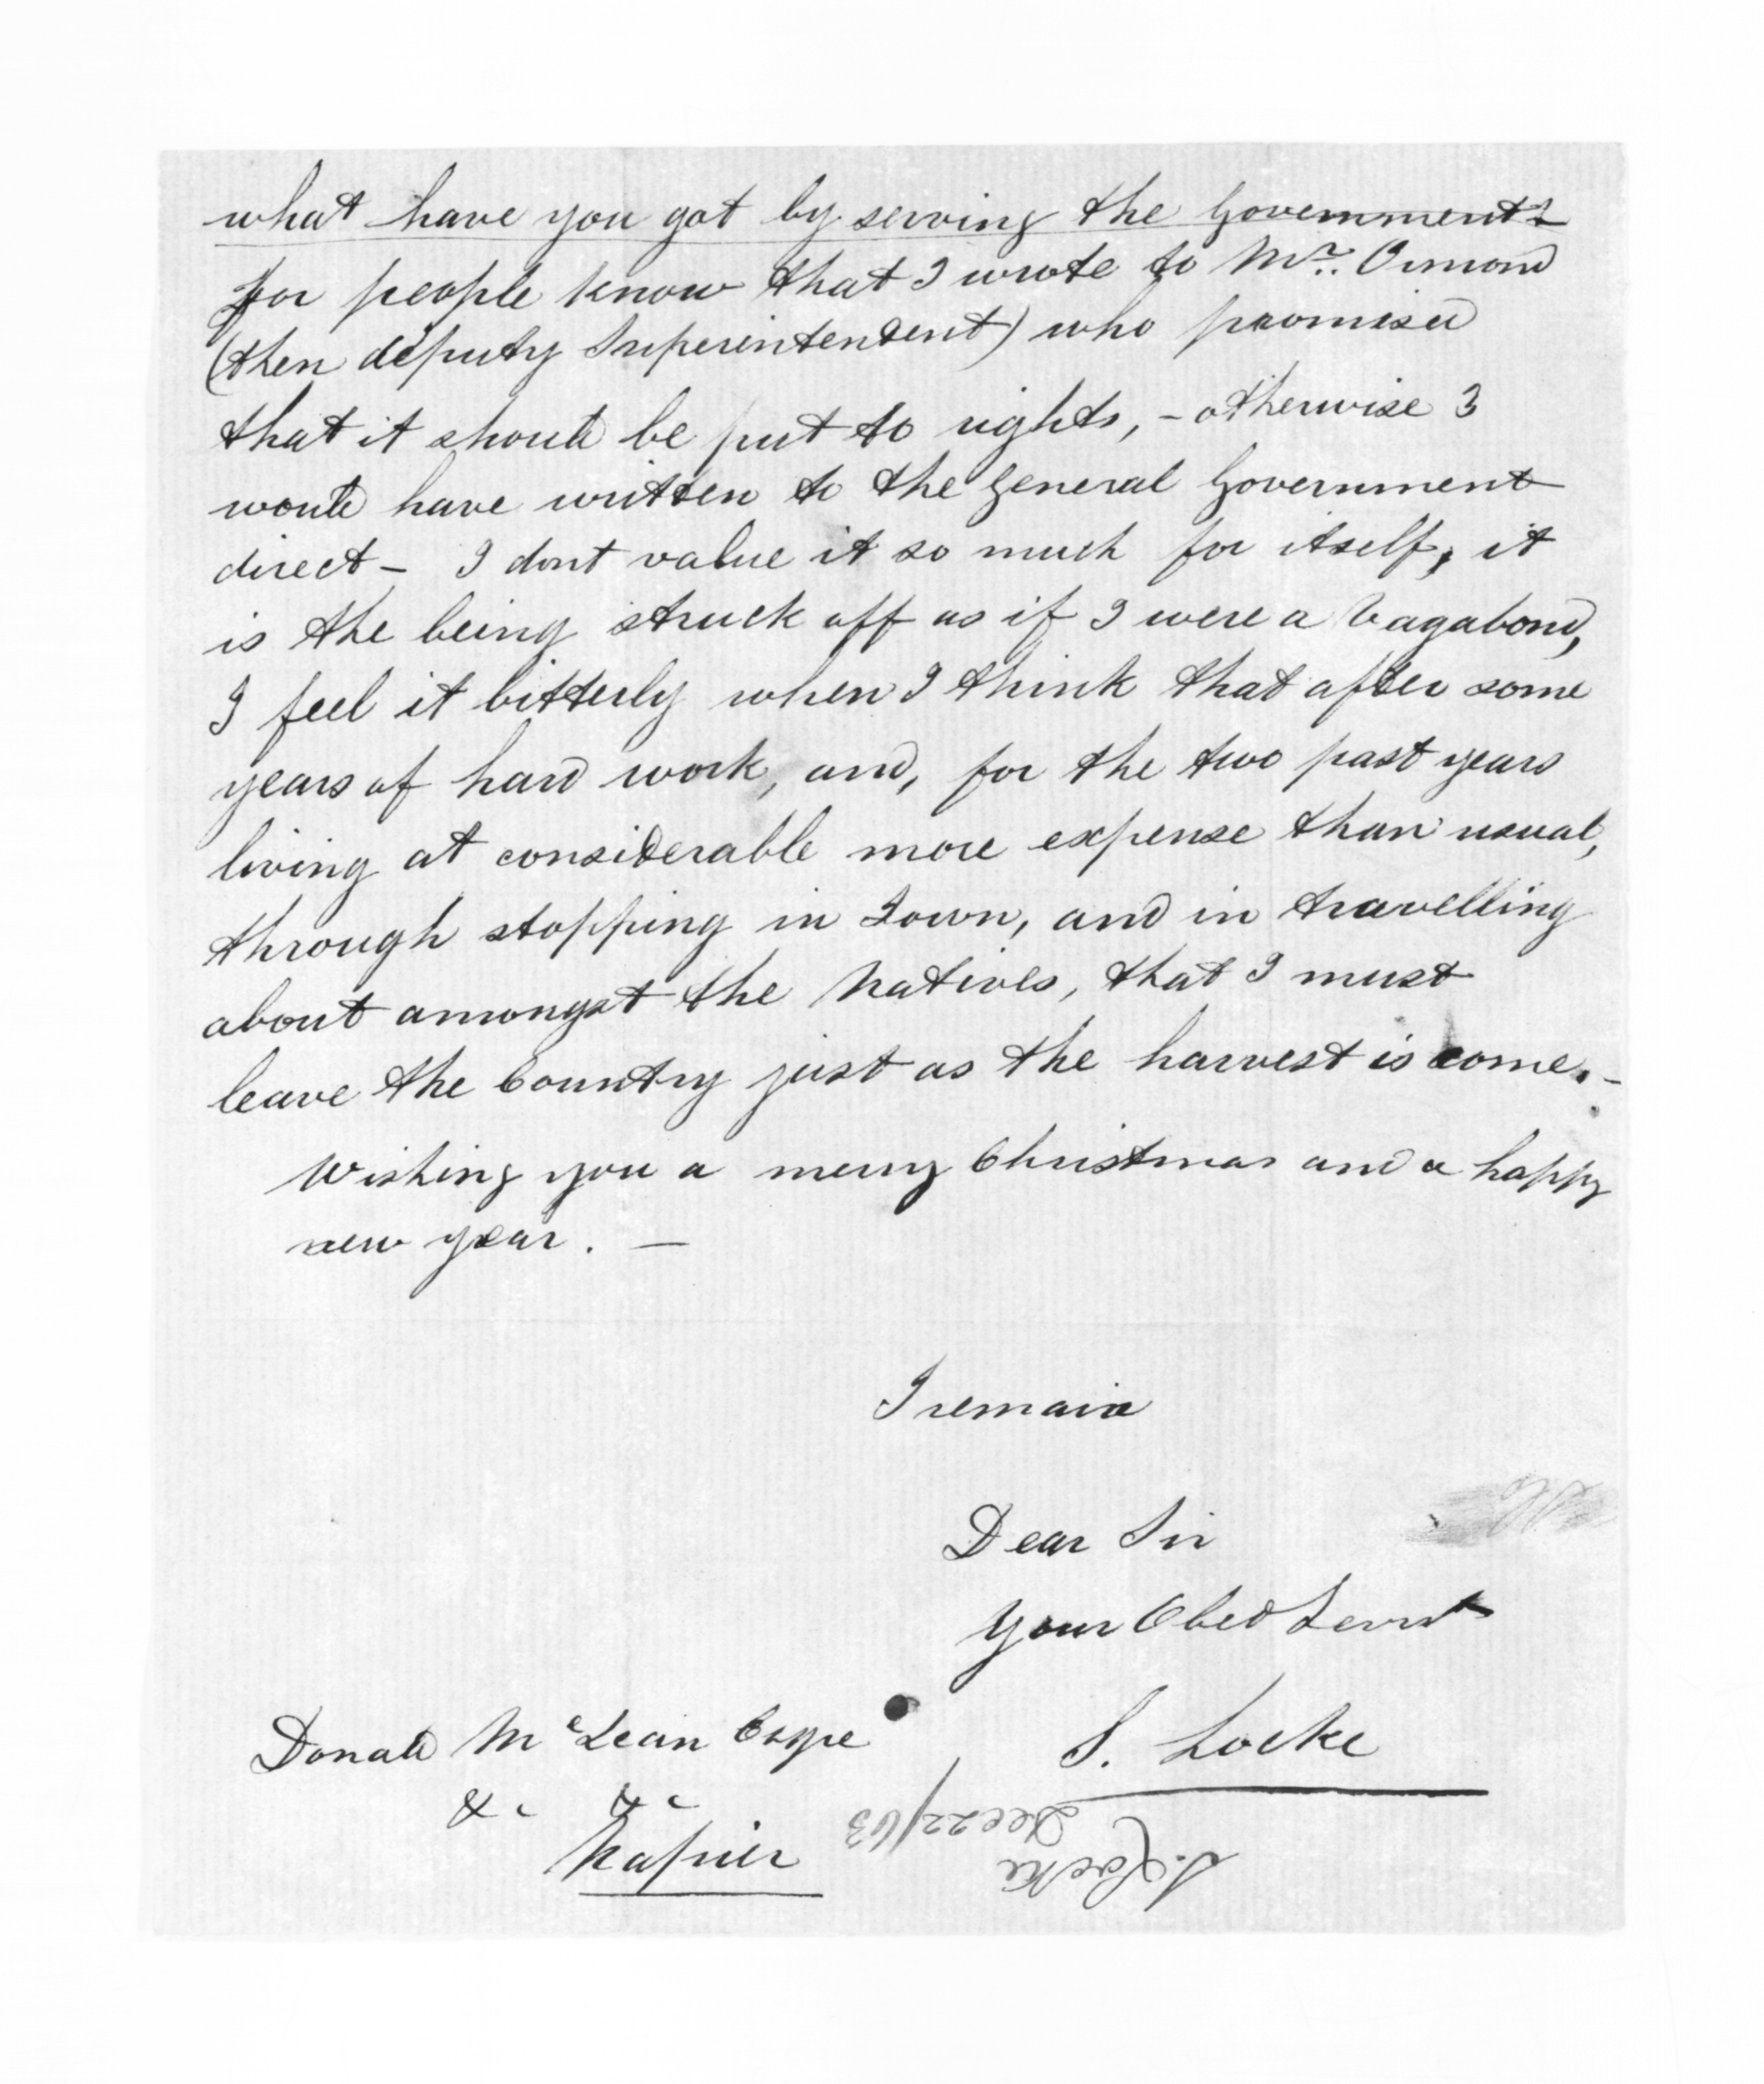 what have you got by serving the Government?
for people know that I wrote to Mr. Ormond
(then deputy Superintendent) who promised
that it should be put to rights, - otherwise I
would have written to the General Government
direct - I dont value it so much for itself, it
is the being struck off as if I were a Vagabond,
I feel it bitterly when I think that after some
years of hard work, and, for the two past years
living at considerable more expense than usual,
through stopping in Town, and in travelling
about amongst the Natives, that I must
leave the Country just as the harvest is come. -
Wishing you a merry Christmas and a happy
new year. -
I remain
Dear Sir
Your Obed Servt
S. Locke
Donald McLean Esqre
&c &c
Napier
S. Locke
Dec 22/63